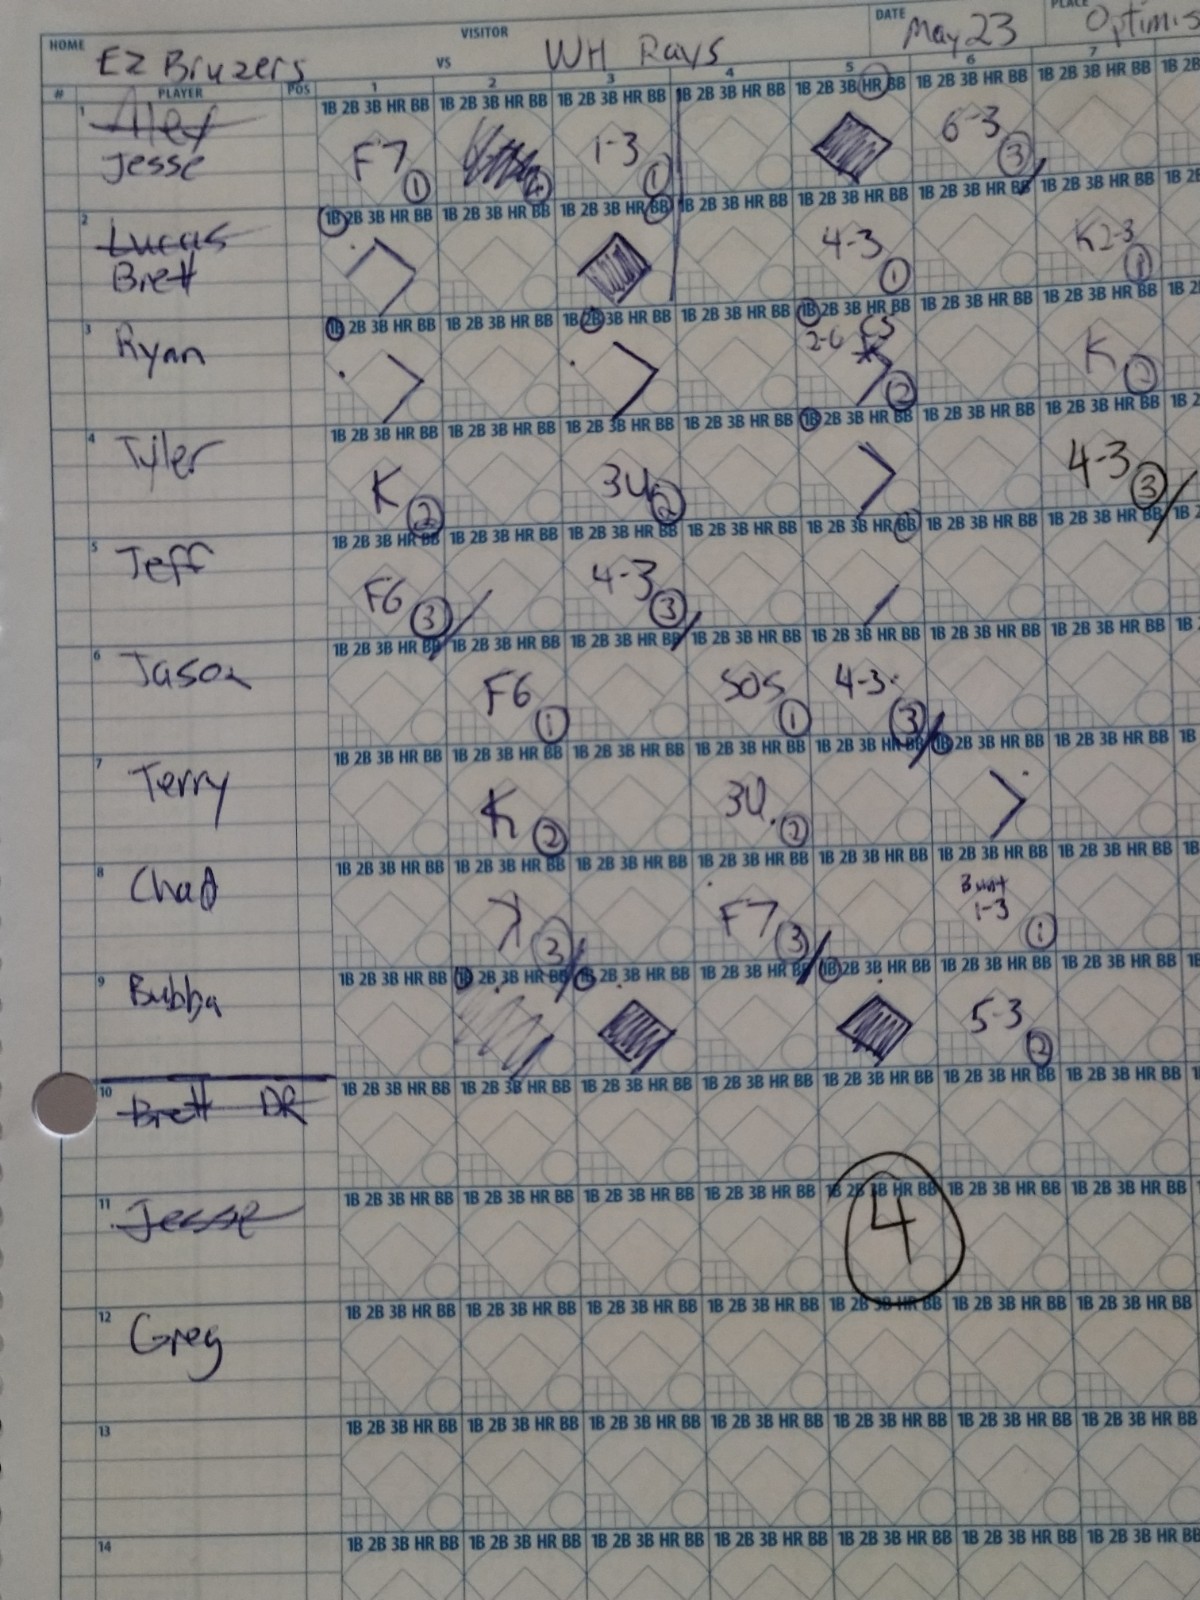 HOME EZ Bruzers VS VISITOR WH Rays DATE May 23 PLACE
# PLAYER POS 1 2 3 4 5 6 7
1B 2B 3B HR BB 1B 2B 3B HR BB 1B 2B 3B HR BB 1B 2B 3B HR BB 1B 2B 3B HR BB 1B 2B 3B HR BB 1B 2B 3B HR BB 1B 2B
1 Alex
Jesse F7 1 1-3 1 6-3 3
1B 2B 3B HR BB 1B 2B 3B HR BB 1B 2B 3B HR BB 1B 2B 3B HR BB 1B 2B 3B HR BB 1B 2B 3B HR BB 1B 2B 3B HR BB 1B 2B
2 Lucas
Brett 4-3 1 K2-3 1
1B 2B 3B HR BB 1B 2B 3B HR BB 1B 2B 3B HR BB 1B 2B 3B HR BB 1B 2B 3B HR BB 1B 2B 3B HR BB 1B 2B 3B HR BB 1B 2B
3 Ryan 2-6 CS 2 K 2
1B 2B 3B HR BB 1B 2B 3B HR BB 1B 2B 3B HR BB 1B 2B 3B HR BB 1B 2B 3B HR BB 1B 2B 3B HR BB 1B 2B 3B HR BB 1B 2
4 Tyler K 2 3U 2 4-3 3
1B 2B 3B HR BB 1B 2B 3B HR BB 1B 2B 3B HR BB 1B 2B 3B HR BB 1B 2B 3B HR BB 1B 2B 3B HR BB 1B 2B 3B HR BB 1B 2
5 Jeff F6 3 4-3 3
1B 2B 3B HR BB 1B 2B 3B HR BB 1B 2B 3B HR BB 1B 2B 3B HR BB 1B 2B 3B HR BB 1B 2B 3B HR BB 1B 2B 3B HR BB 1B
6 Jason F6 1 SOS 1 4-3 3
1B 2B 3B HR BB 1B 2B 3B HR BB 1B 2B 3B HR BB 1B 2B 3B HR BB 1B 2B 3B HR BB 1B 2B 3B HR BB 1B 2B 3B HR BB 1B
7 Terry K 2 3U 2
1B 2B 3B HR BB 1B 2B 3B HR BB 1B 2B 3B HR BB 1B 2B 3B HR BB 1B 2B 3B HR BB 1B 2B 3B HR BB 1B 2B 3B HR BB 1B
8 Chad K 3 F7 3 Bunt 1-3 1
1B 2B 3B HR BB 1B 2B 3B HR BB 1B 2B 3B HR BB 1B 2B 3B HR BB 1B 2B 3B HR BB 1B 2B 3B HR BB 1B 2B 3B HR BB 1B
9 Bubba 5-3 2
1B 2B 3B HR BB 1B 2B 3B HR BB 1B 2B 3B HR BB 1B 2B 3B HR BB 1B 2B 3B HR BB 1B 2B 3B HR BB 1B 2B 3B HR BB
10 Brett DR
1B 2B 3B HR BB 1B 2B 3B HR BB 1B 2B 3B HR BB 1B 2B 3B HR BB 1B 2B 3B HR BB 1B 2B 3B HR BB 1B 2B 3B HR BB
11 Jesse 4
1B 2B 3B HR BB 1B 2B 3B HR BB 1B 2B 3B HR BB 1B 2B 3B HR BB 1B 2B 3B HR BB 1B 2B 3B HR BB 1B 2B 3B HR BB
12 Greg
1B 2B 3B HR BB 1B 2B 3B HR BB 1B 2B 3B HR BB 1B 2B 3B HR BB 1B 2B 3B HR BB 1B 2B 3B HR BB 1B 2B 3B HR BB
13
1B 2B 3B HR BB 1B 2B 3B HR BB 1B 2B 3B HR BB 1B 2B 3B HR BB 1B 2B 3B HR BB 1B 2B 3B HR BB 1B 2B 3B HR BB
14